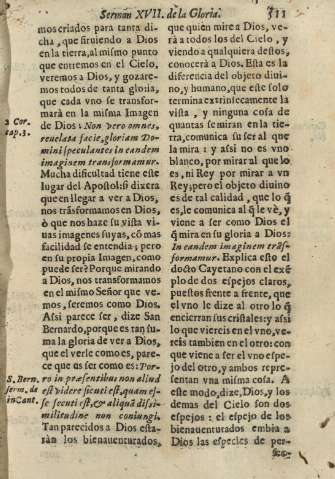 Sermon XVII. de la Gloria. 311
mos criados para tanta di-
cha, que siruiendo a Dios
en la tierra, al mismo punto
que entremos en el Cielo,
veremos a Dios, y gozare-
mos todos de tanta gloria,
que cada vno se transfor-
marà en la misma Imagen
2 Cor. de Dios: Non vero omnes,
cap. 3. reuelata facie, gloriam Do-
mini speculantes in eandem
imaginem transformamur.
Mucha dificultad tiene este
lugar del Apostol: si dixera
que en llegar a ver a Dios,
nos trãsformamos en Dios,
ò que nos haze su vista vi-
uas imagenes suyas, cõ mas
facilidad se entendia; pero
en su propia Imagen, como
puede ser? Porque mirando
a Dios, nos transformamos
en el mismo Señor que ve-
mos, seremos como Dios.
Assi parece ser, dize San
Bernardo, porque es tan su-
ma la gloria de ver a Dios,
que el verle como es, pare-
ce que es ser como es: Por-
S. Bern. ro in præsentibus non aliud
serm. de est videre sicuti est, quam es-
in Cant. se sicuti est, & aliqua dissi-
militudine non coniungi.
Tan parecidos a Dios esta-
ràn los bienauenturados,
que quien mire a Dios, ve-
rà a todos los del Cielo, y
viendo a qualquiera destos,
conocerà a Dios. Esta es la
diferencia del objeto diui-
no, y humano, que este solo
termina extrinsecamente la
vista, y ninguna cosa de
quantas se miran en la tie-
rra, comunica su ser al que
la mira: y assi no es vno
blanco, por mirar al que lo
es, ni Rey por mirar a vn
Rey; pero el objeto diuino
es de tal calidad, que lo q̃
es, le comunica al q̃ le vè, y
viene a ser como Dios el
q̃ mira en su gloria a Dios:
In eandem imaginem trãs-
formamur. Explica esto el
docto Cayetano con el exẽ-
plo de dos espejos claros,
puestos frente a frente, que
el vno le dize al otro lo q̃
encierran sus cristales: y assi
lo que viereis en el vno, ve-
reis tambien en el otro: con
que viene a ser el vno espe-
jo del otro, y ambos repre-
sentan vna misma cosa. A
este modo, dize, Dios, y los
demas del Cielo son dos
espejos: el espejo de los
bienauenturados embia a
Dios las especies de per-
fec-